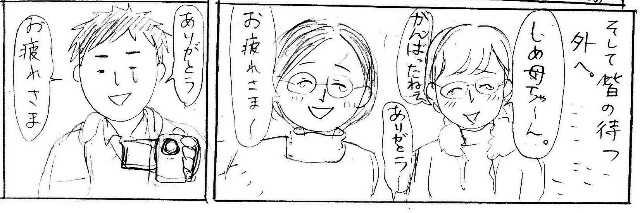 そして皆の待つ
外へ。
しめ母ちゃーん。
がんばったねぇ
ありがとうー
お疲れさま〜
ありがとうー
お疲れさま